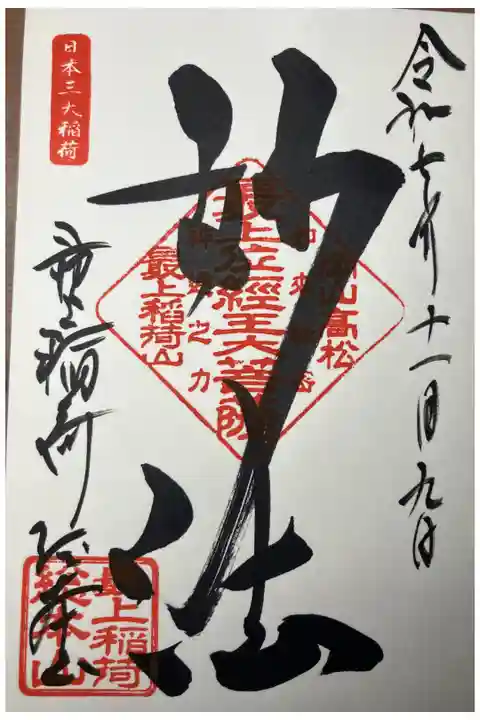 令和七年十一月九日
妙法
最上位經王大菩薩
高松
最上稲荷山
之力
日本三大稲荷
最上稲荷総本山
最上稲荷
総本山